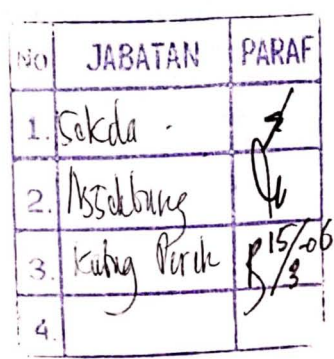 NO JABATAN PARAF
1. Sekda .
2. Assekbang
3. Kabag Perek 15/3-06
4.